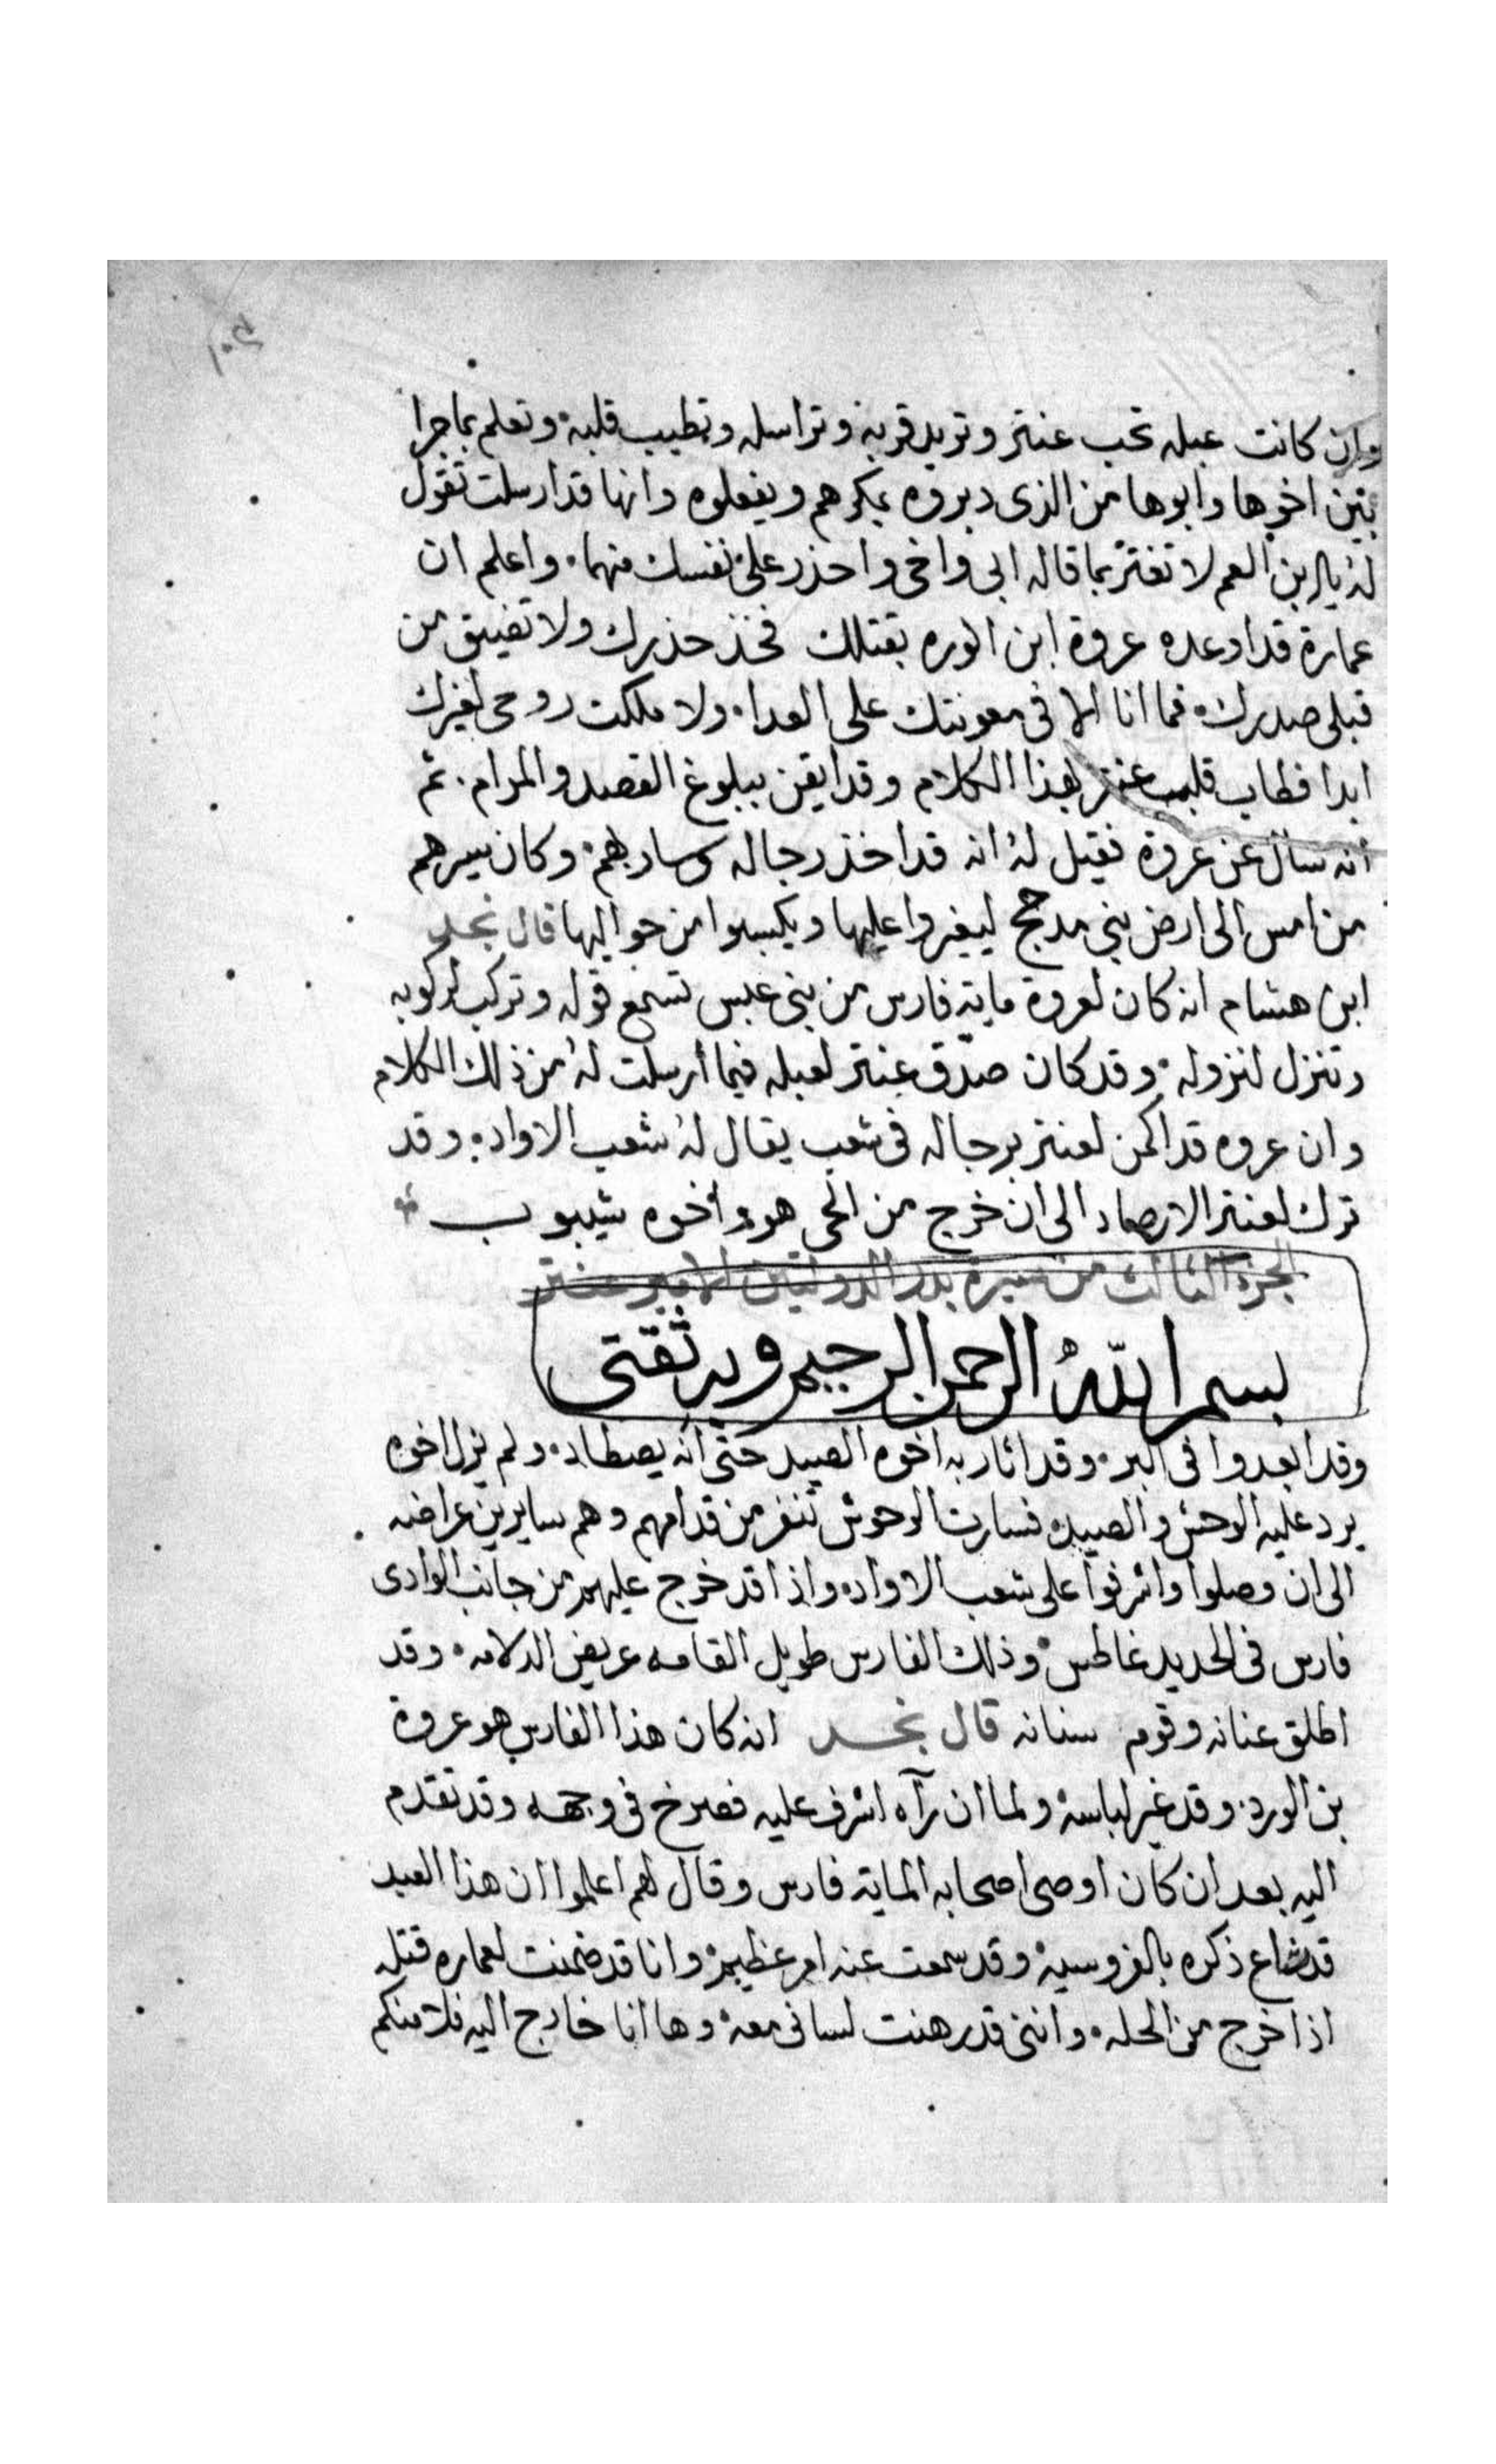 وان كانت عبله تحب عنتر وتريد قربه وتراسله وتطيب قلبه وتعلم بما جرا
بين اخوها وابوها من الذى دبروه بمكرهم ويفعلوه وانها قد ارسلت تقول
له يا ابن العم لا تغتر بما قاله ابى واخى واحذر على نفسك منهما واعلم ان
عمارة قد اوعده عروة ابن الورد بقتلك فخذ حذرك ولا تضيق من
قبلى صدرك فما انا الا فى معونتك على العدا ولا ملكت روحى لغيرك
ابدا فطاب قلب عنتر بهذا الكلام وقد ايقن ببلوغ القصد والمرام ثم
انه سال عن عروة فقيل له انه قد اخذ رجاله وسار بهم وكان سيرهم
من امس الى ارض بنى مدحج ليغيروا عليها ويكسبوا من حواليها قال نجد
ابن هشام انه كان لعروة ماية فارس من بنى عبس تسمع قوله وتركب لركوبه
وتنزل لنزوله وقد كان صدّق عنتر لعبله فيما أرسلت له من ذلك الكلام
وان عروه قد اكمن لعنتر برجاله فى شعب يقال له شعب الاواد وقد
ترك لعنتر الارصاد الى ان خرج من الحى هو وأخوه شيبوب
الجزء الثالث من سيرة بدر الدولتين الامير عنتر
بسم اللّه الرحمن الرحيم وبه ثقتى
وقد ابعدوا فى البر وقد اثار به اخوه الصيد حتى انه يصطاد ولم يزل اخوه
يرد عليه الوحش والصيد فسارت الوحوش تنفر من قدامهم وهم سايرين عراضه
الى ان وصلوا واشرفوا على شعب الاواد واذا قد خرج عليهم من جانب الوادى
فارس فى الحديد غاطس وذلك الفارس طويل القامه عريض الدلامه وقد
اطلق عنانه وقوم سنانه قال نجد انه كان هذا الفارس هو عروة
بن الورد وقد غير لباسه ولما ان رآه اشرف عليه فصرخ فى وجهه وقد تقدم
اليه بعد ان كان اوصى اصحابه الماية فارس وقال لهم اعلموا ان هذا العبد
قد شاع ذكره بالفروسيه وقد سمعت عنه امر عظيم وانا قد ضمنت لعماره قتله
اذا خرج من الحله واننى قد رهنت لسانى معه وها انا خارج اليه فلا منكم